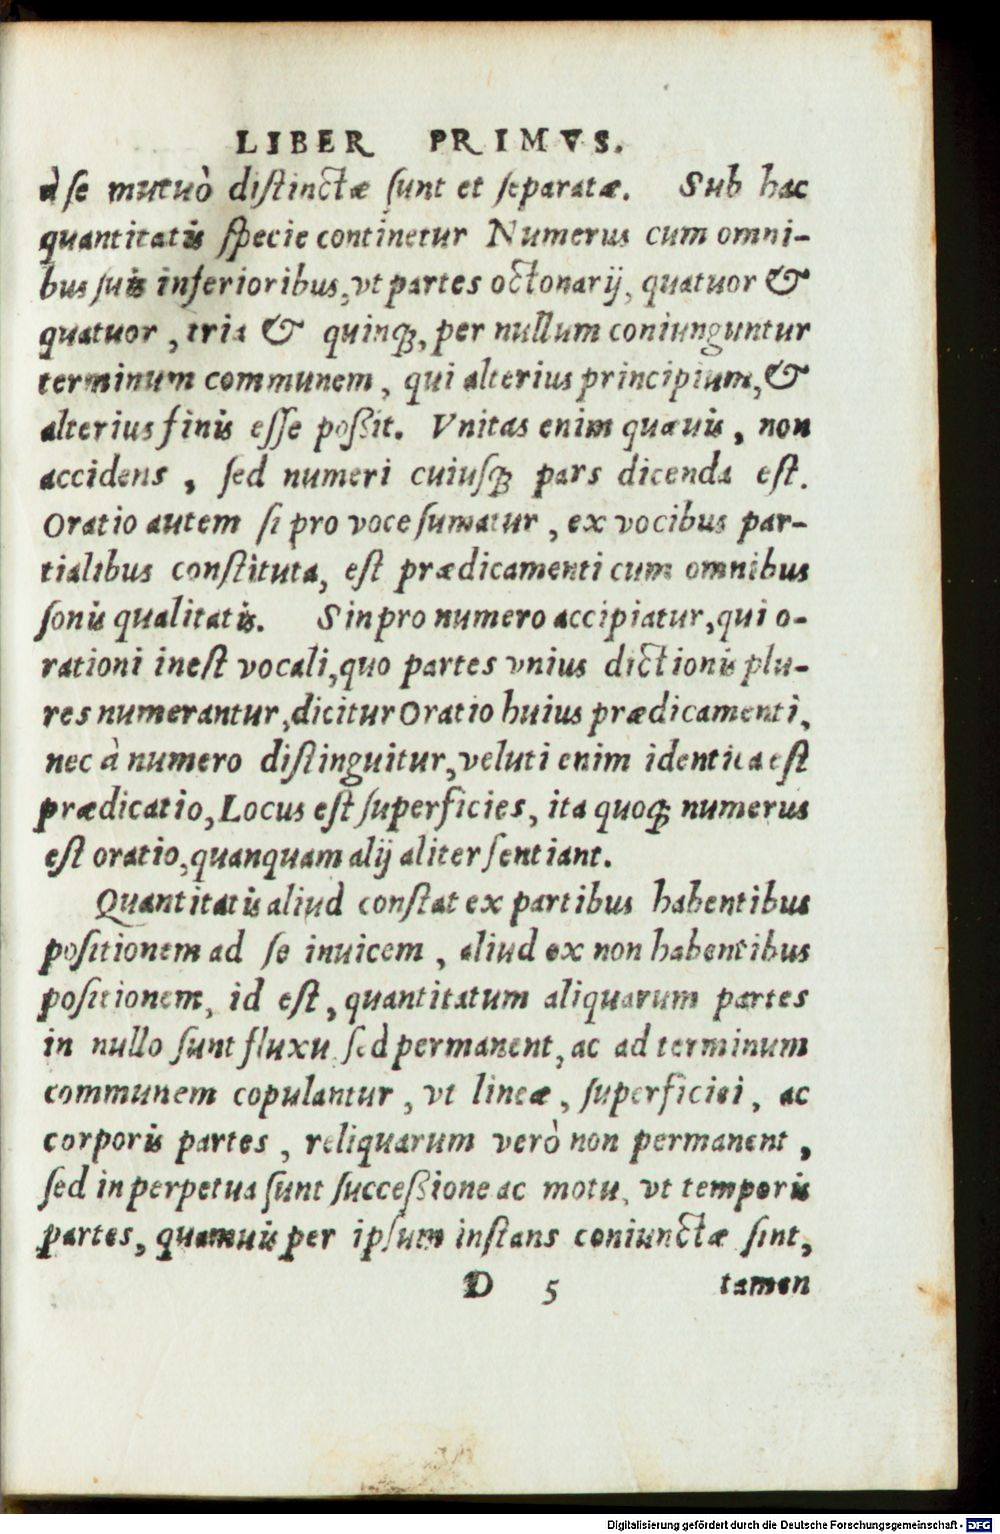 LIBER PRIMVS.
à ſe mutuò diſtinctæ ſunt et ſeparatæ. Sub hac
quantitatis ſpecie continetur Numerus cum omni-
bus ſuis inferioribus, vt partes octonarij, quatuor &
quatuor, tria & quinq;, per nullum coniunguntur
terminum communem, qui alterius principium, &
alterius finis eſſe poßit. Vnitas enim quæuis, non
accidens, ſed numeri cuiuſq; pars dicenda eſt.
Oratio autem ſi pro voce ſumatur, ex vocibus par-
tialibus conſtituta, eſt prædicamenti cum omnibus
ſonis qualitatis. Sin pro numero accipiatur, qui o-
rationi ineſt vocali, quo partes vnius dictionis plu-
res numerantur, dicitur Oratio huius prædicamenti,
nec à numero diſtinguitur, veluti enim identica eſt
prædicatio, Locus eſt ſuperficies, ita quoq; numerus
eſt oratio, quanquam alij aliter ſentiant.
Quantitatis aliud conſtat ex partibus habentibus
poſitionem ad ſe inuicem, aliud ex non habentibus
poſitionem, id eſt, quantitatum aliquarum partes
in nullo ſunt fluxu ſed permanent, ac ad terminum
communem copulantur, vt lineæ, ſuperficiei, ac
corporis partes, reliquarum verò non permanent,
ſed in perpetua ſunt ſucceßione ac motu, vt temporis
partes, quamuis per ipſum inſtans coniunctæ ſint,
D 5 tamen
Digitalisierung gefördert durch die Deutsche Forschungsgemeinschaft - DFG